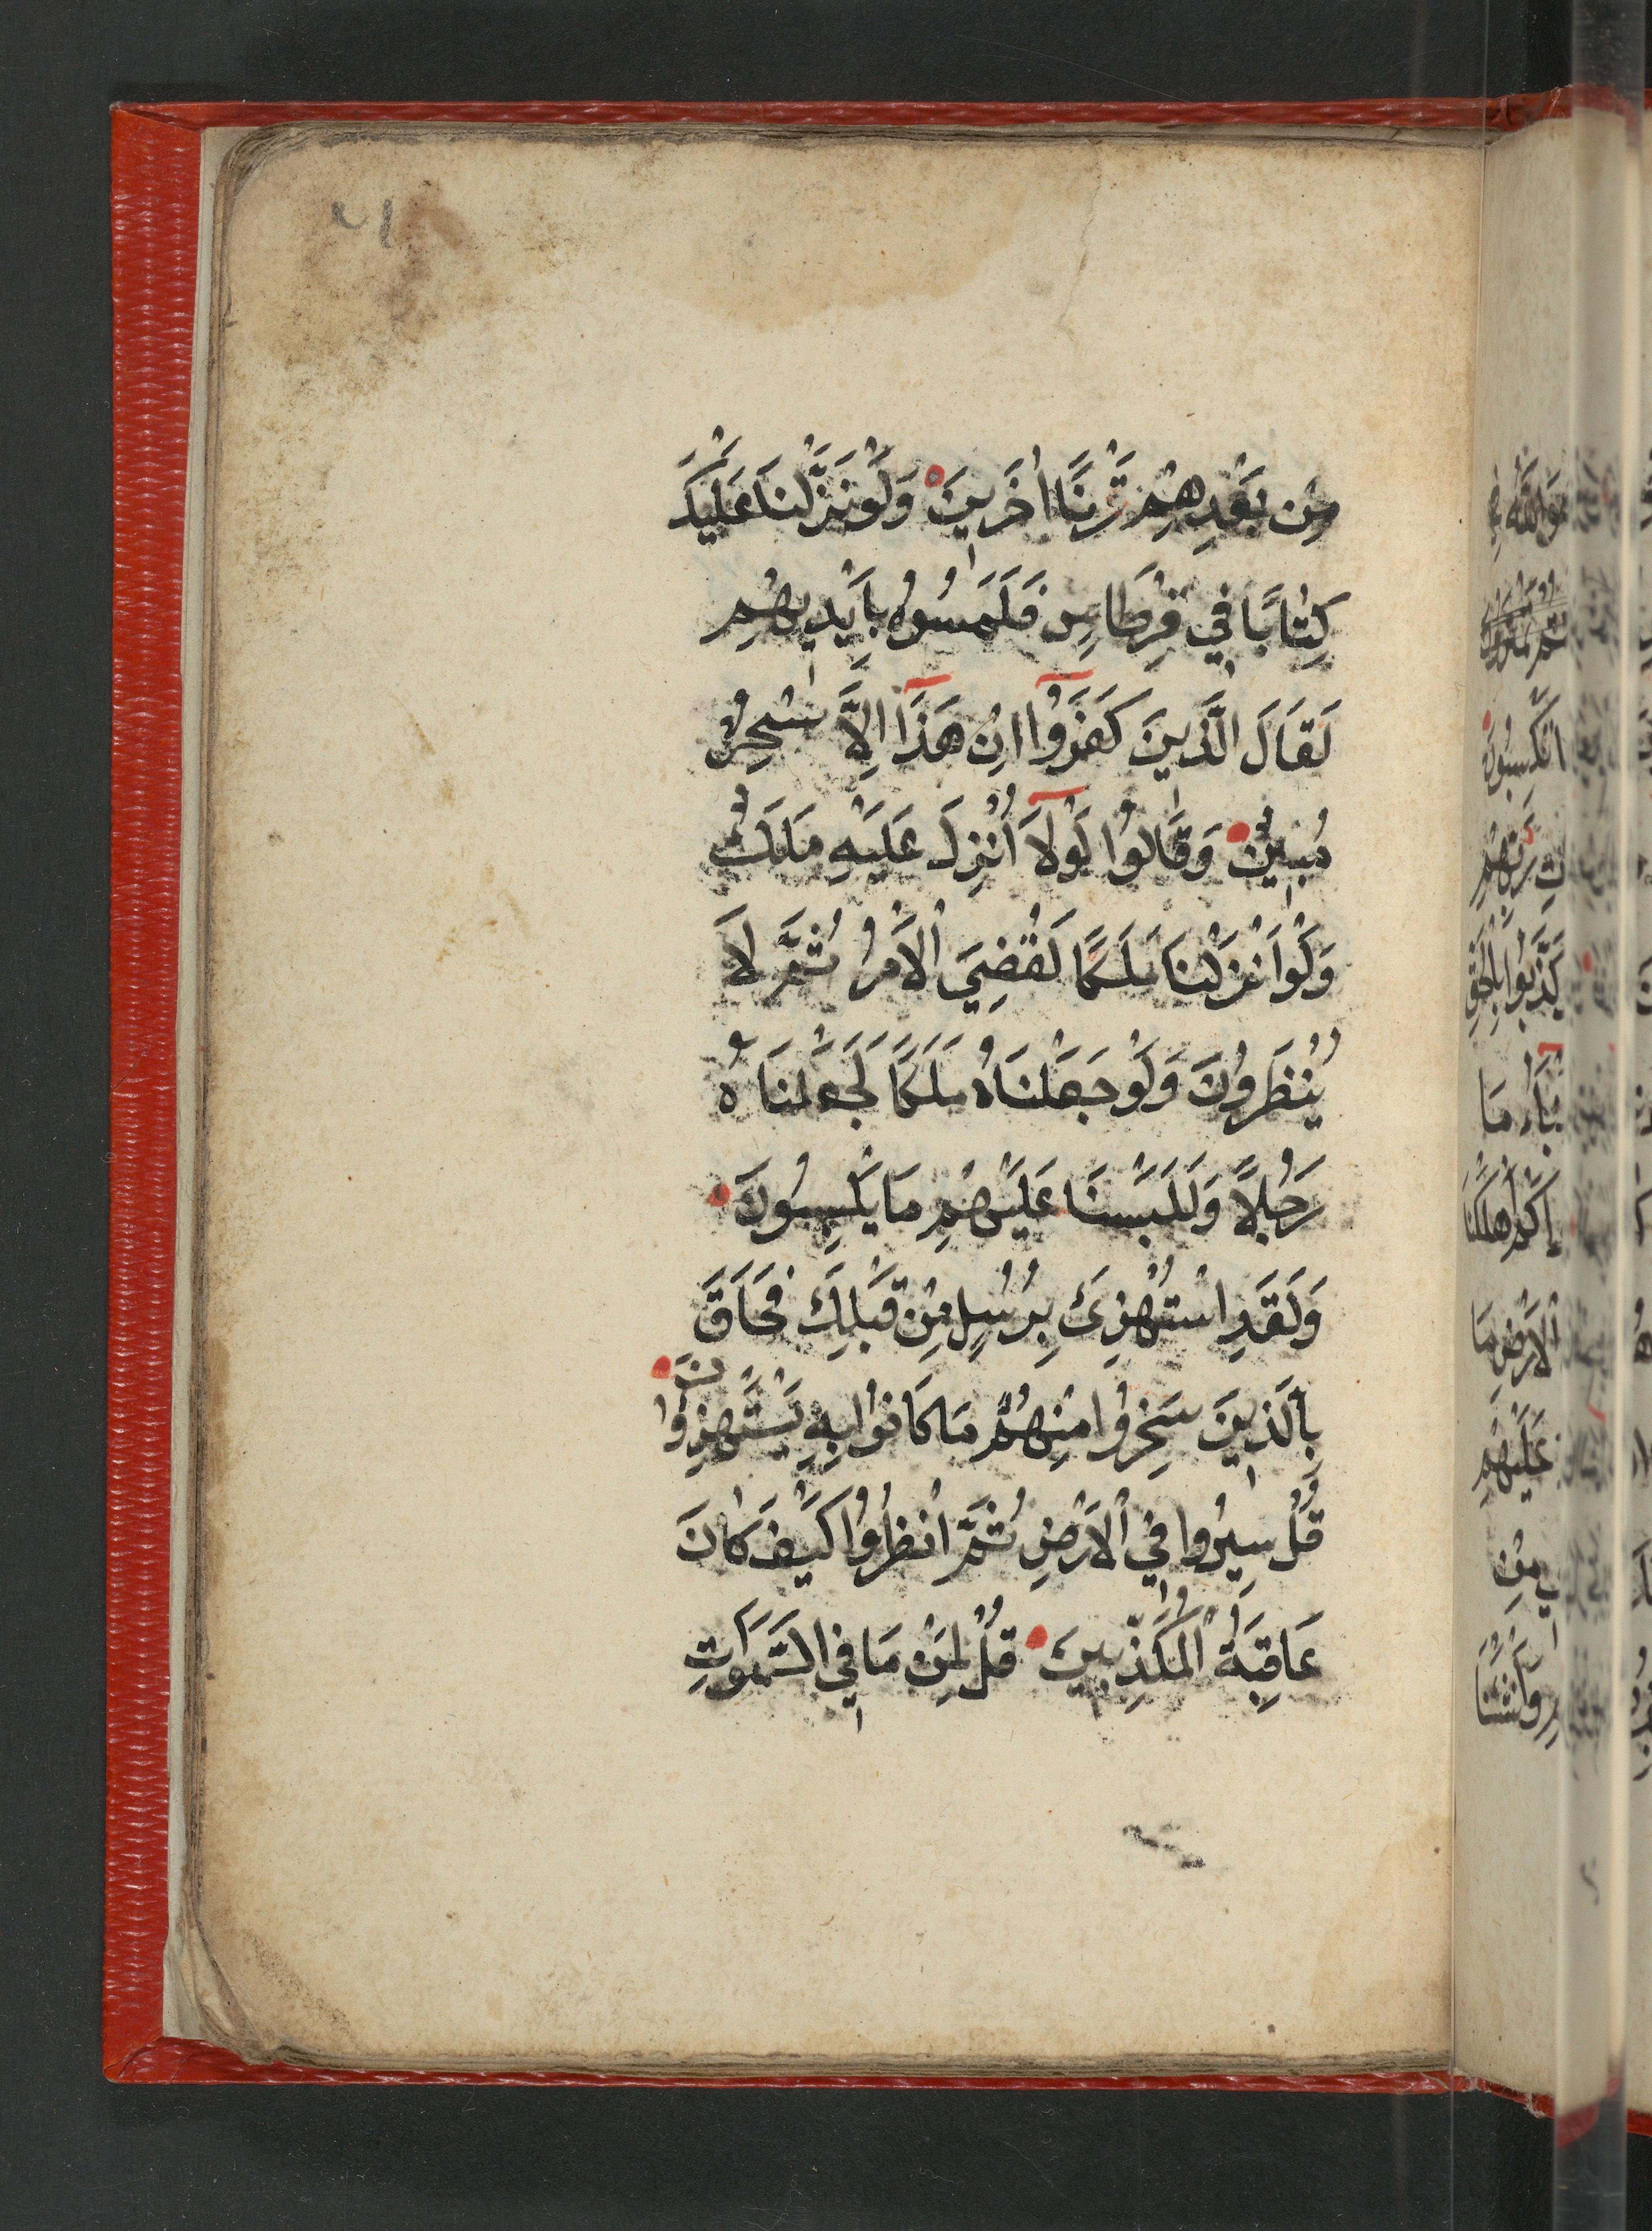 مِن بَعْدِهِمْ قَرْنًا اٰخَرِينَ وَلَوْنَزَّلْنَا عَلَيْكَ
كِتٰابًا فِي قِرْطَاسٍ فَلَمَسُوهُ بِاَيْدِيهِمْ
لَقَالَ الَّذِينَ كَفَرُوٓا اِنْ هَذَٓا اِلاَّ سِحْرٌ
مُبِينٌ وَقَالُوا لَوْلآَ اُنْزِلَ عَلَيْهِ مَلَكٌ
وَلَوْ اَنْزَلْنَا مَلَكًا لَقُضِيَ الْاَمْرُ ثُمَّ لاَ
يُنْظَرُونَ وَلَوْ جَعَلْنَاهُ مَلَكًا لَجَعَلْنَاهُ
رَجُلاً وَلَلَبَسْنَا عَلَيْهِمْ مَا يَلْبِسُونَ
وَلَقَدِ اسْتُهْزِئَ بِرُسُلٍ مِنْ قَبْلِكَ فَحَاقَ
بِالَّذِينَ سَخِرُوا مِنْهُمْ مَا كَانُوا بِهِ يَسْتَهْزِؤُنَ
قُلْ سِيرُوا فِي الْاَرْضِ ثُمَّ انْظُرُوا كَيْفَ كَانَ
عَاقِبَةُ الْمُكَذِّبِينَ قُلْ لِمَنْ مَا فِي السَّمَوَاتِ